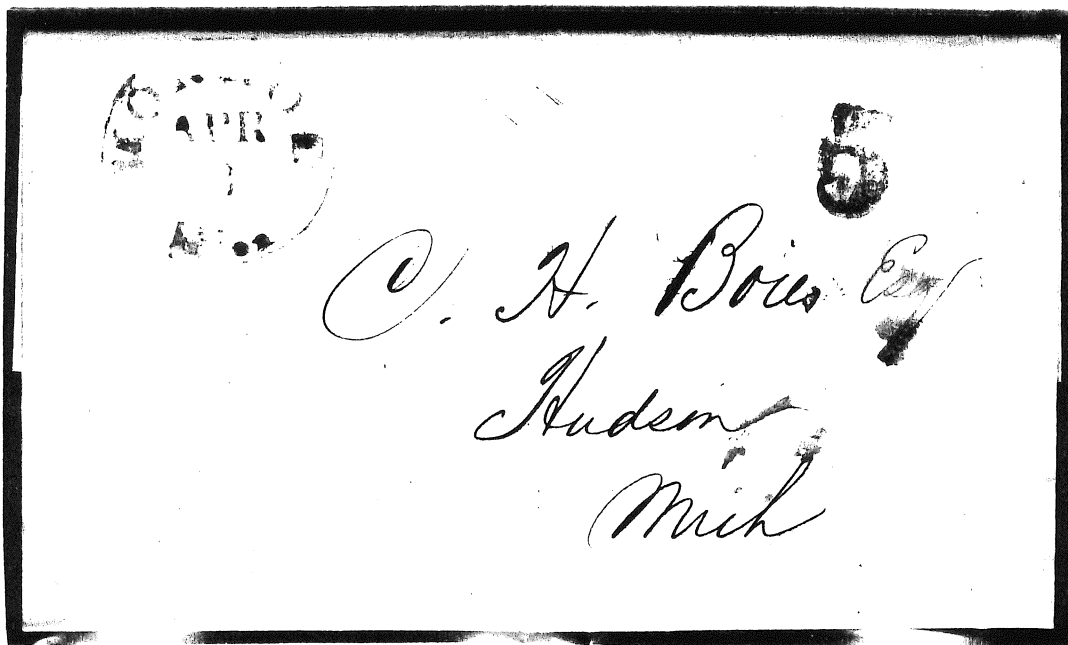 APR
1
5
C. H. Boies Esq
Hudson
Mich